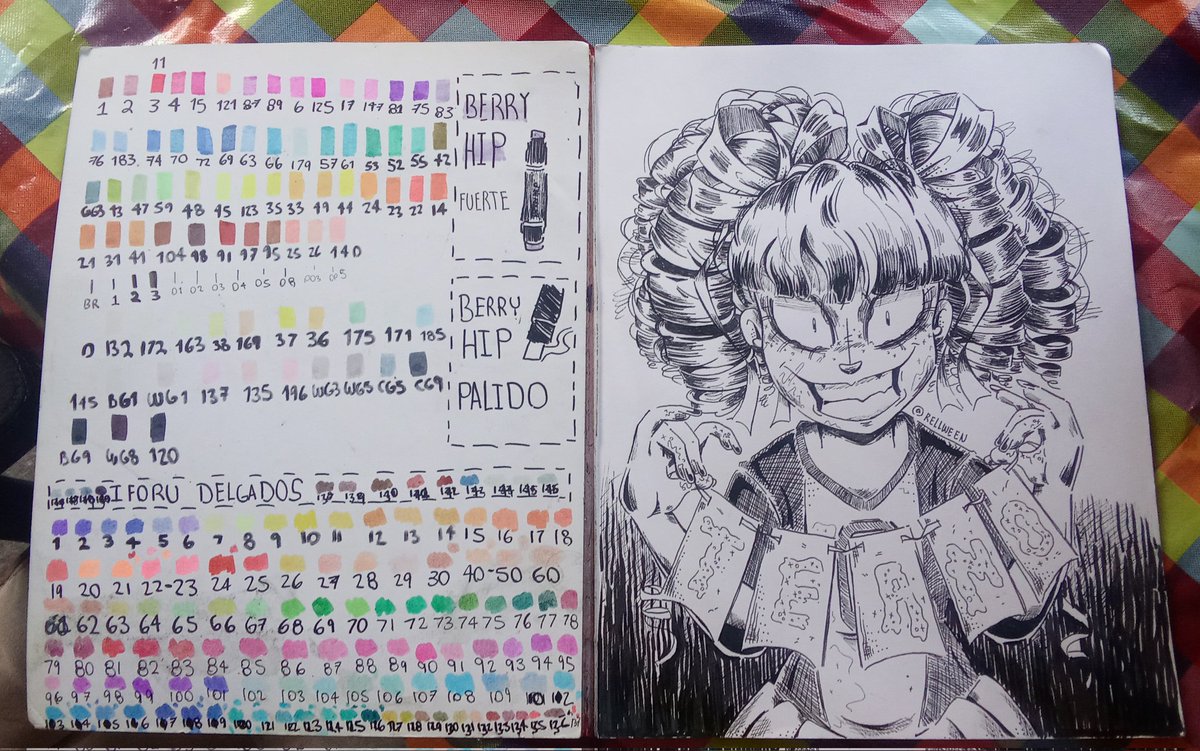 11
1 2 3 4 15 121 87 89 6 125 17 147 81 75 83
76 183 74 70 72 69 63 66 179 57 61 53 52 55 42
43 47 59 48 45 123 35 33 49 44 24 23 22 14
21 31 41 104 98 91 97 95 25 26 140
BR 1 2 3 01 02 03 04 05 08 003 005
0 132 172 163 38 169 37 36 175 171 185
145 BG1 WG1 137 135 196 WG3 WG5 CG5 CG9
BG9 WG8 120
BERRY
HIP
FUERTE
BERRY
HIP
PALIDO
IFORU DELGADOS
1 2 3 4 5 6 7 8 9 10 11 12 13 14 15 16 17 18
19 20 21 22-23 24 25 26 27 28 29 30 40-50 60
61 62 63 64 65 66 67 68 69 70 71 72 73 74 75 76 77 78
79 80 81 82 83 84 85 86 87 88 89 90 91 92 93 94 95
96 97 98 99 100 101 102 103 104 105 106 107 108 109 101 102
103 104 105 106 107 108 109 120 121 122 123 124 125 126 127 128 129 130 131 132 133 134 135 136
@RELLWEEN